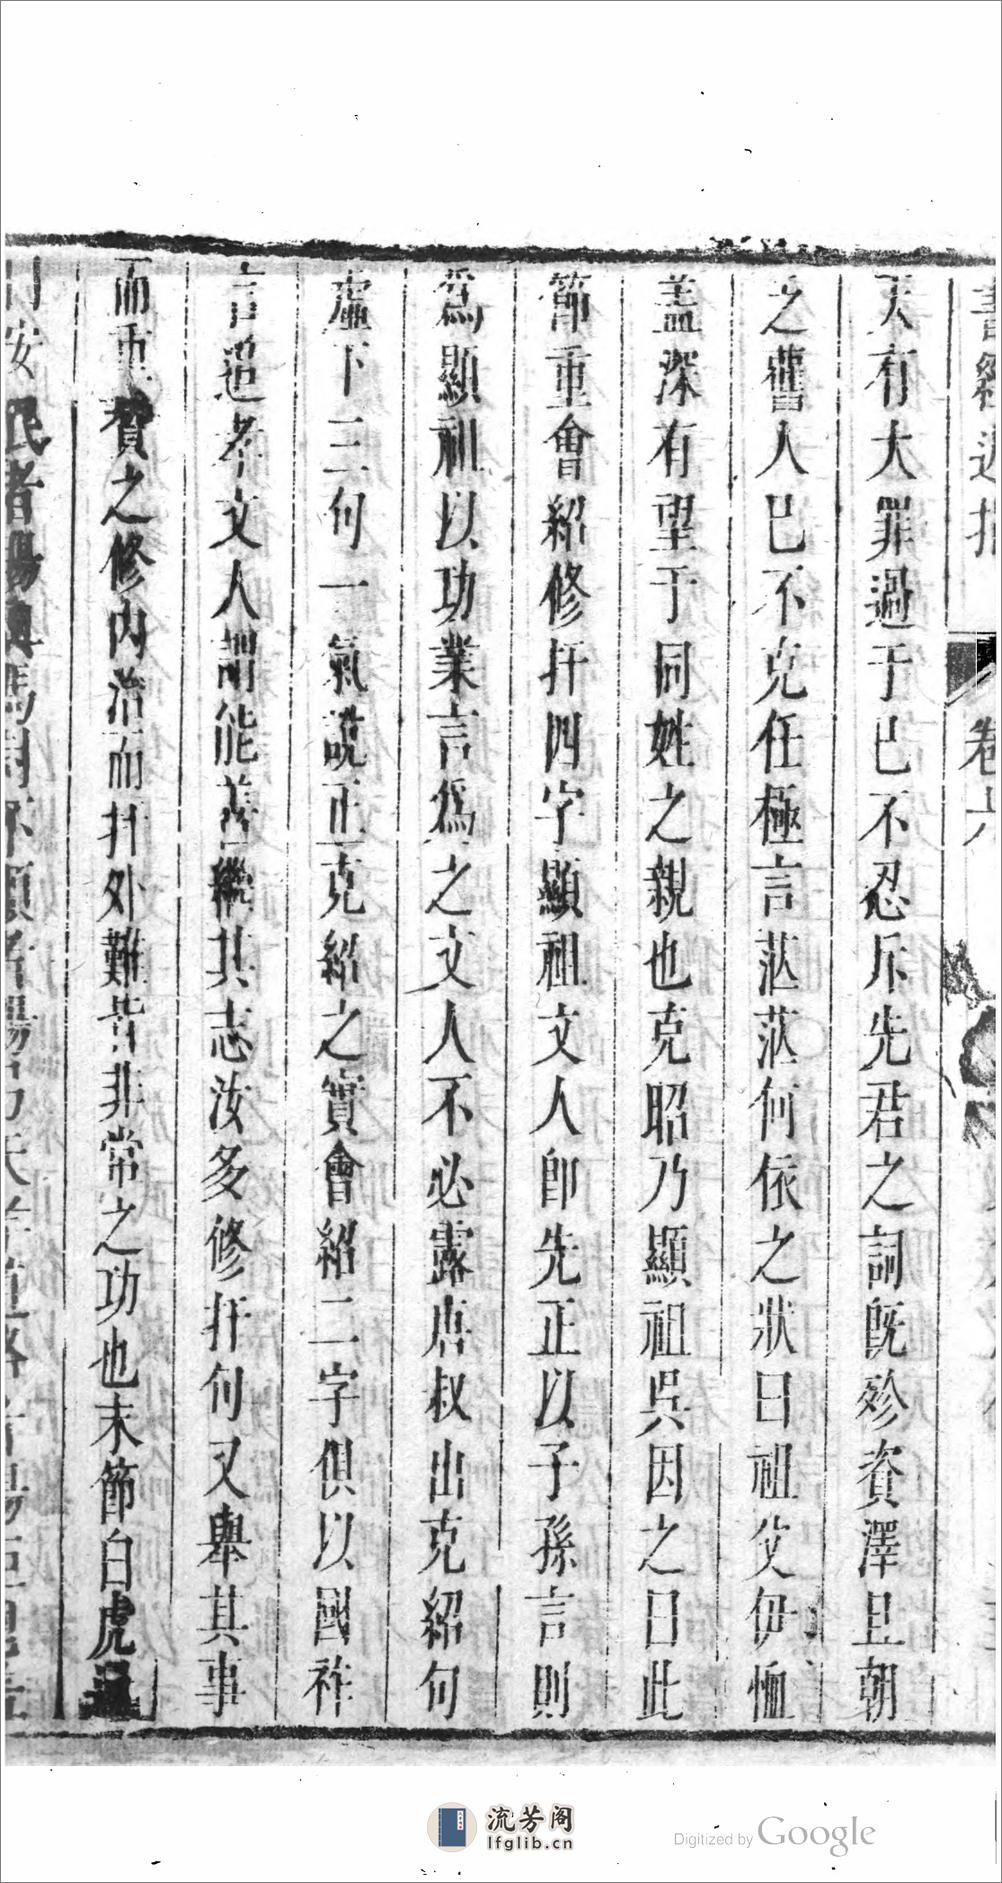 書經近指 卷六
天有大罪過于已不忍斥先君之詞旣殄資澤且朝
之舊人已不克任極言茫茫何依之狀曰祖父伊恤
盖深有望于同姓之親也克昭乃顯祖吳因之曰此
節重會紹修扞四字顯祖文人卽先正以子孫言則
爲顯祖以功業言爲之文人不必露唐叔出克紹句
虛下三句一氣說正克紹之實會紹二字俱以國祚
言追孝文人謂能善繼其志汝多修扞句又舉其事
而重賛之修內治而扞外難皆非常之功也末節白虎通